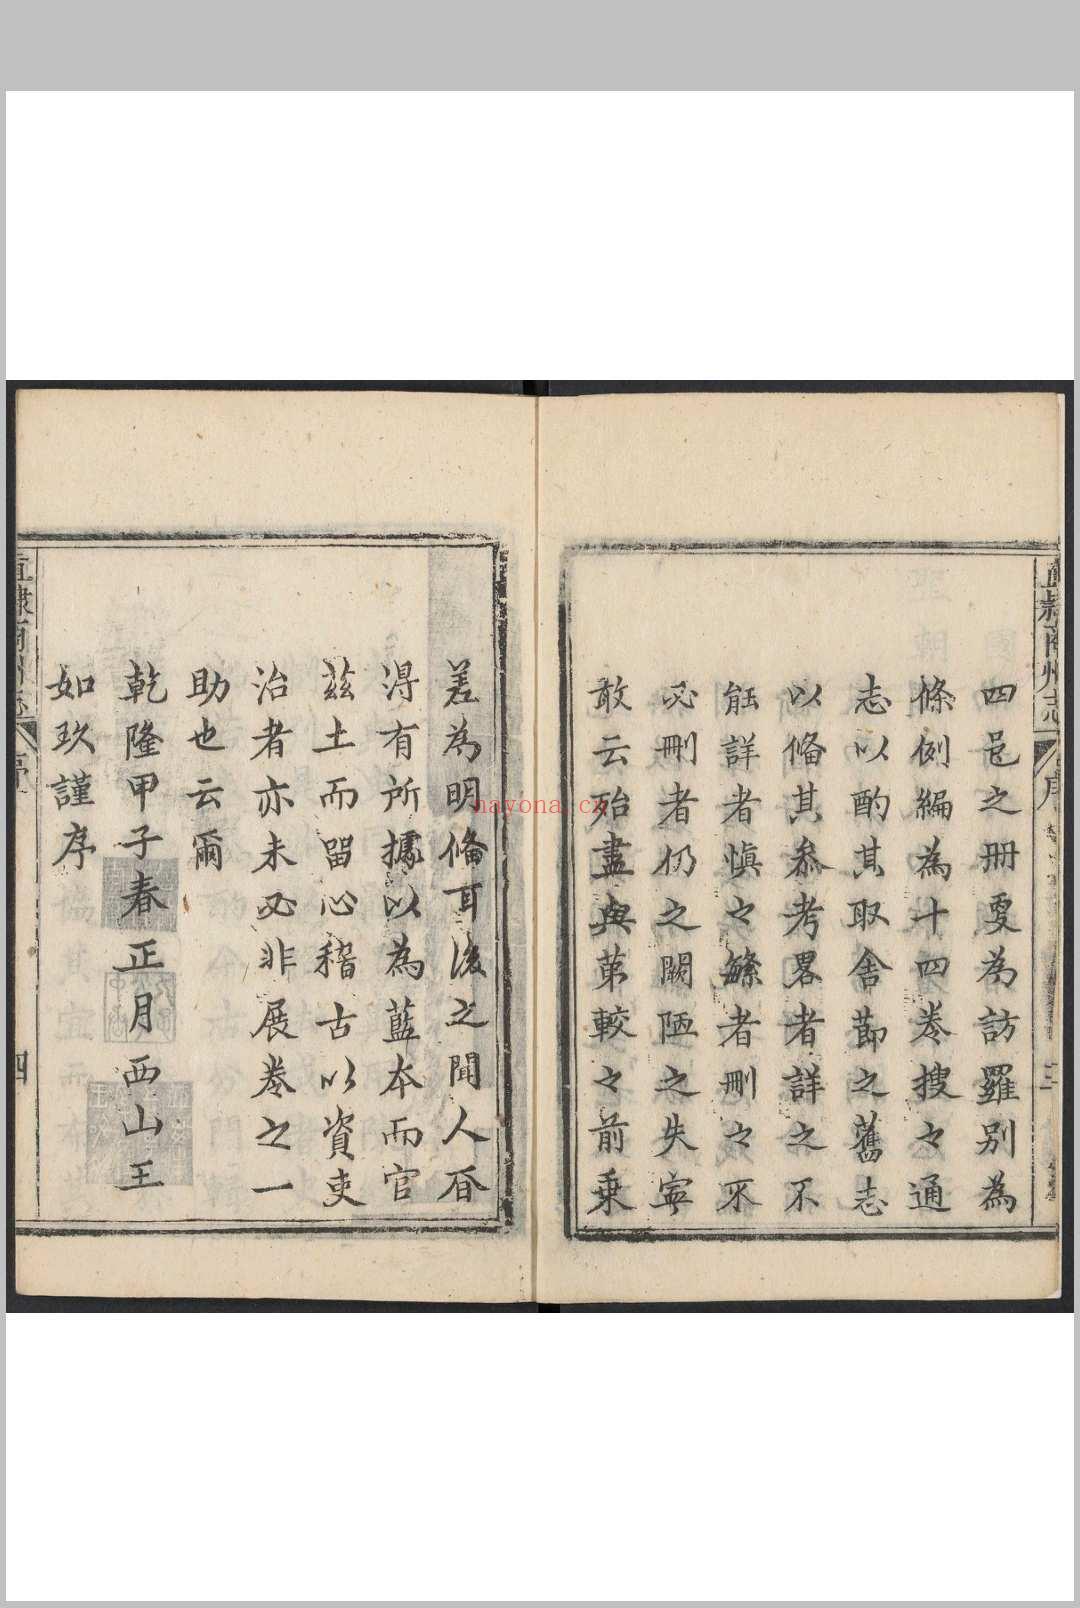 直隸商州志
序
四邑之冊更為訪羅别為
條例編為十四卷搜之通
志以酌其取舍節之舊志
以俻其叅考畧者詳之不
能詳者慎之繁者刪之不
必刪者仍之闕陋之失寧
敢云殆盡與第較之前乗
差為明俻耳後之聞人百
得有所據以為藍本而官
茲土而留心稽古以資吏
治者亦未必非展卷之一
助也云爾
乾隆甲子春正月西山王
如玖謹序
直隸商州志
序
四
nayona.cn